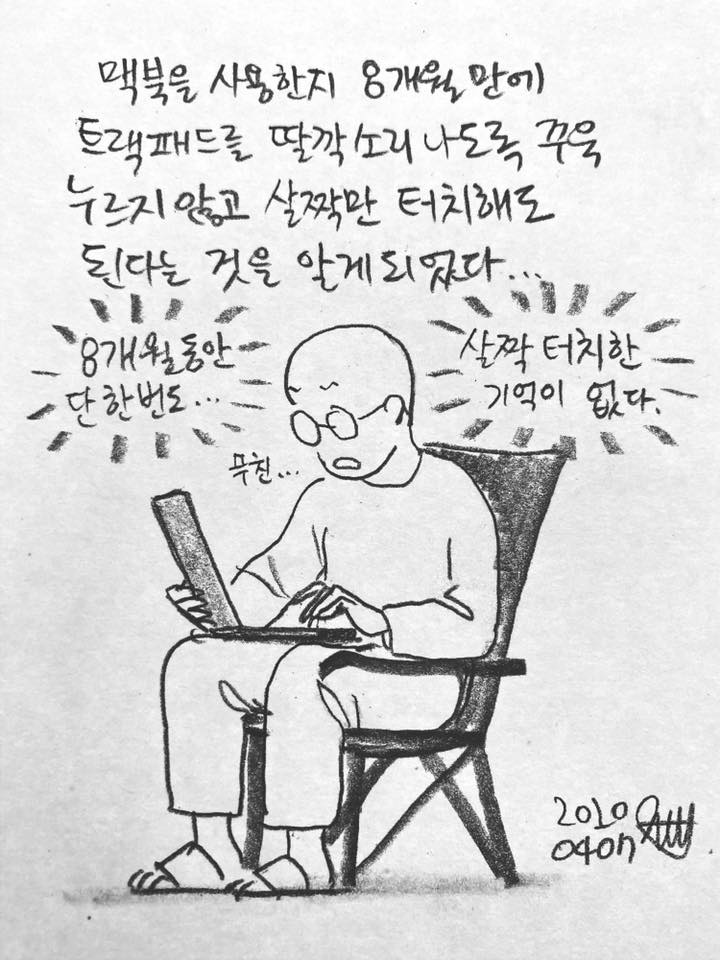 맥북을 사용한지 8개월 만에
트랙패드를 딸깍소리 나도록 꾸욱
누르지 않고 살짝만 터치해도
된다는 것을 알게되었다...
8개월동안
단 한번도...
살짝 터치한
기억이 없다.
무친...
2020
0407